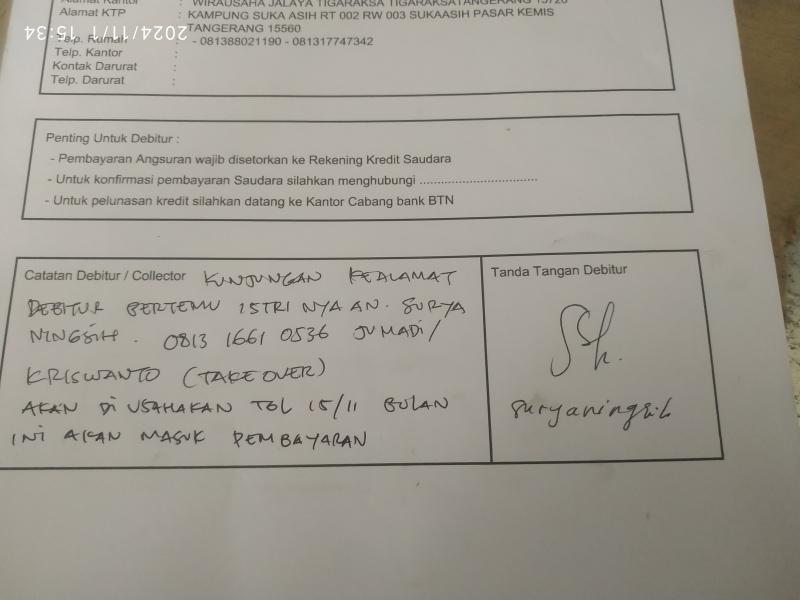 Alamat Kantor : WIRAUSAHA JALAYA TIGARAKSA TIGARAKSATANGERANG 15720
Alamat KTP : KAMPUNG SUKA ASIH RT 002 RW 003 SUKAASIH PASAR KEMIS
TANGERANG 15560
Telp. Rumah : - 081388021190 - 081317747342
Telp. Kantor :
Kontak Darurat :
Telp. Darurat :
2024/11/11 15:34
Penting Untuk Debitur :
- Pembayaran Angsuran wajib disetorkan ke Rekening Kredit Saudara
- Untuk konfirmasi pembayaran Saudara silahkan menghubungi ..................................
- Untuk pelunasan kredit silahkan datang ke Kantor Cabang bank BTN
Catatan Debitur / Collector KUNJUNGAN KEALAMAT
DEBITUR BERTEMU ISTRI NYA AN. SURYA
NINGSIH. 0813 1661 0536 JUMADI/
KRISWANTO (TAKEOVER)
AKAN DI USAHAKAN TGL 15/11 BULAN
INI AKAN MASUK PEMBAYARAN
Tanda Tangan Debitur
Suryaningsih